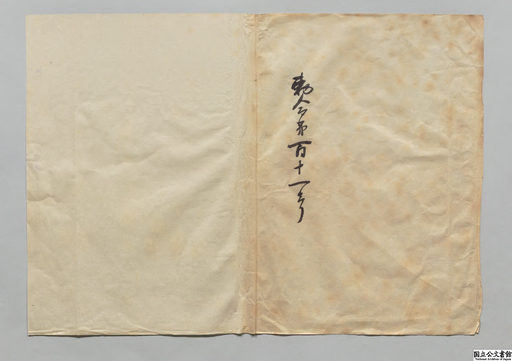 勅令第百十一号
国立公文書館
National Archives of Japan